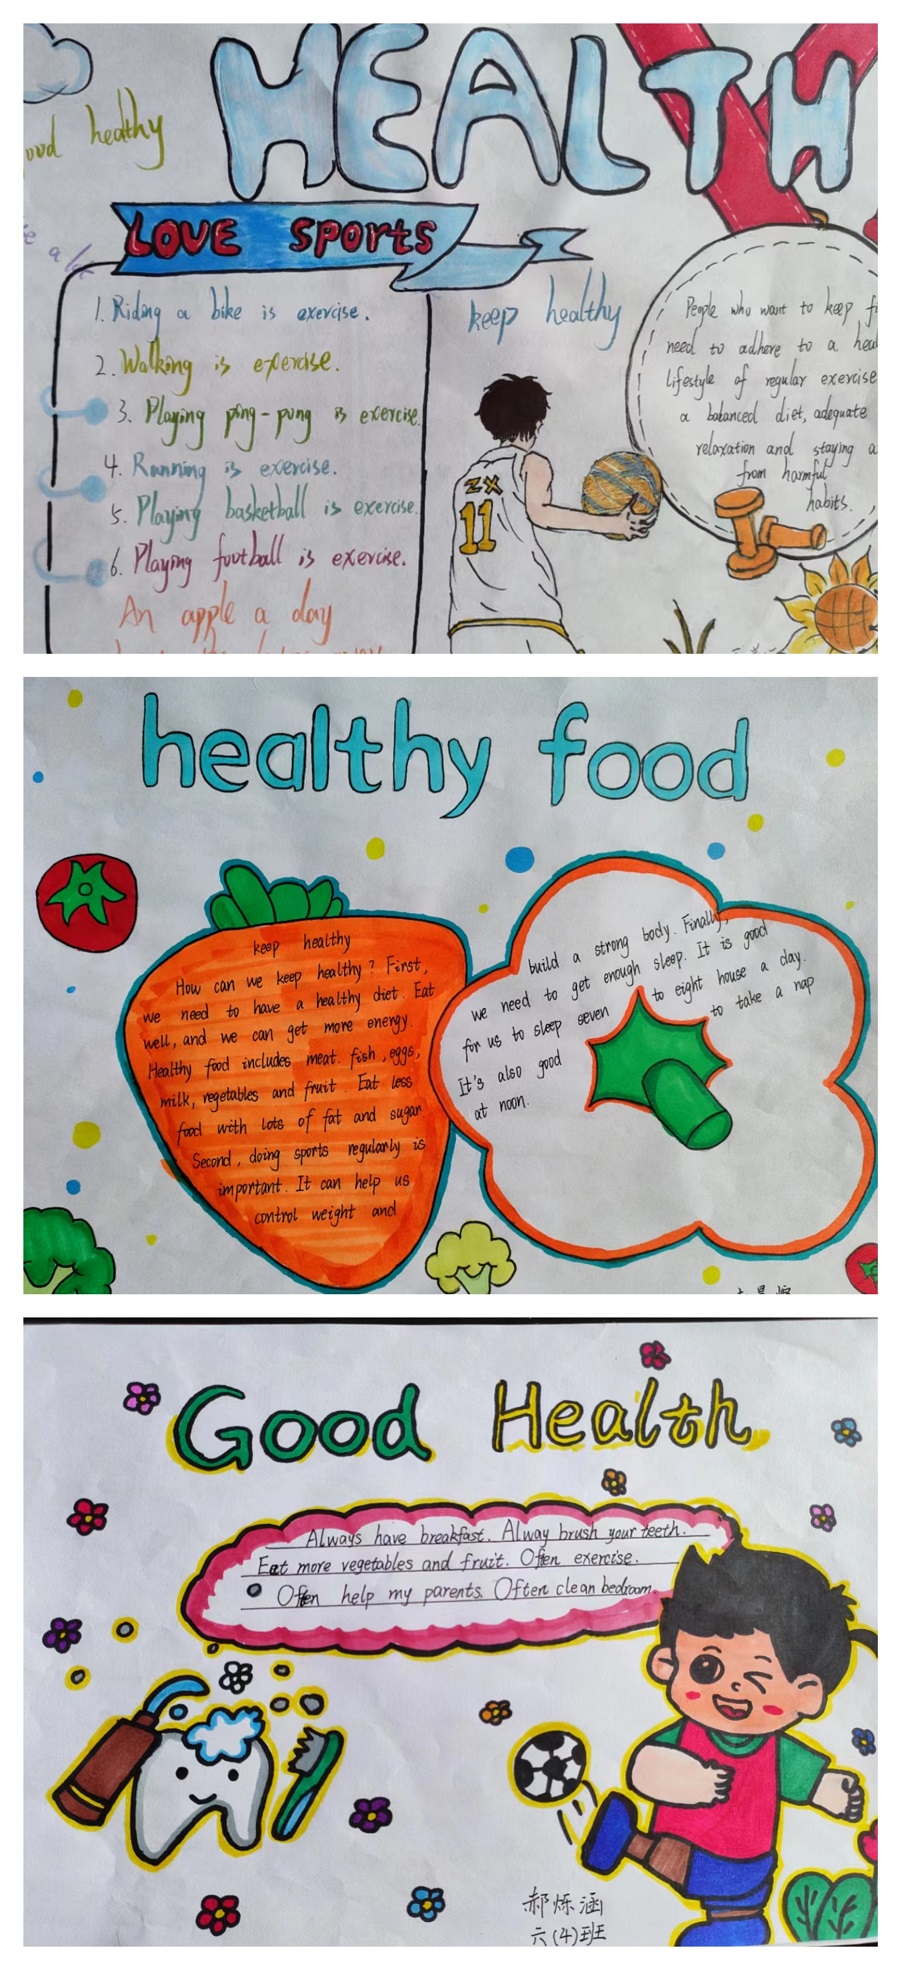 HEALTH
healthy
LOVE sports
1. Riding a bike is exercise.
2. Walking is exercise.
3. Playing ping-pong is exercise.
4. Running is exercise.
5. Playing basketball is exercise.
6. Playing football is exercise.
An apple a day
keep healthy
ZX
11
People who want to keep
need to adhere to a
lifestyle of regular exercise
a balanced diet, adequate
relaxation and staying
from harmful
habits.
healthy food
keep healthy
How can we keep healthy? First,
we need to have a healthy diet. Eat
well, and we can get more energy.
Healthy food includes meat. fish, eggs,
milk, vegetables and fruit. Eat less
food with lots of fat and sugar
Second, doing sports regularly is
important. It can help us
control weight and
build a strong body. Finally,
we need to get enough sleep. It is good
for us to sleep seven to eight house a day.
It's also good to take a nap
at noon.
Good Health
Always have breakfast. Alway brush your teeth.
Eat more vegetables and fruit. Often exercise.
Often help my parents. Often clean bedroom.
郝烁涵
六(4)班